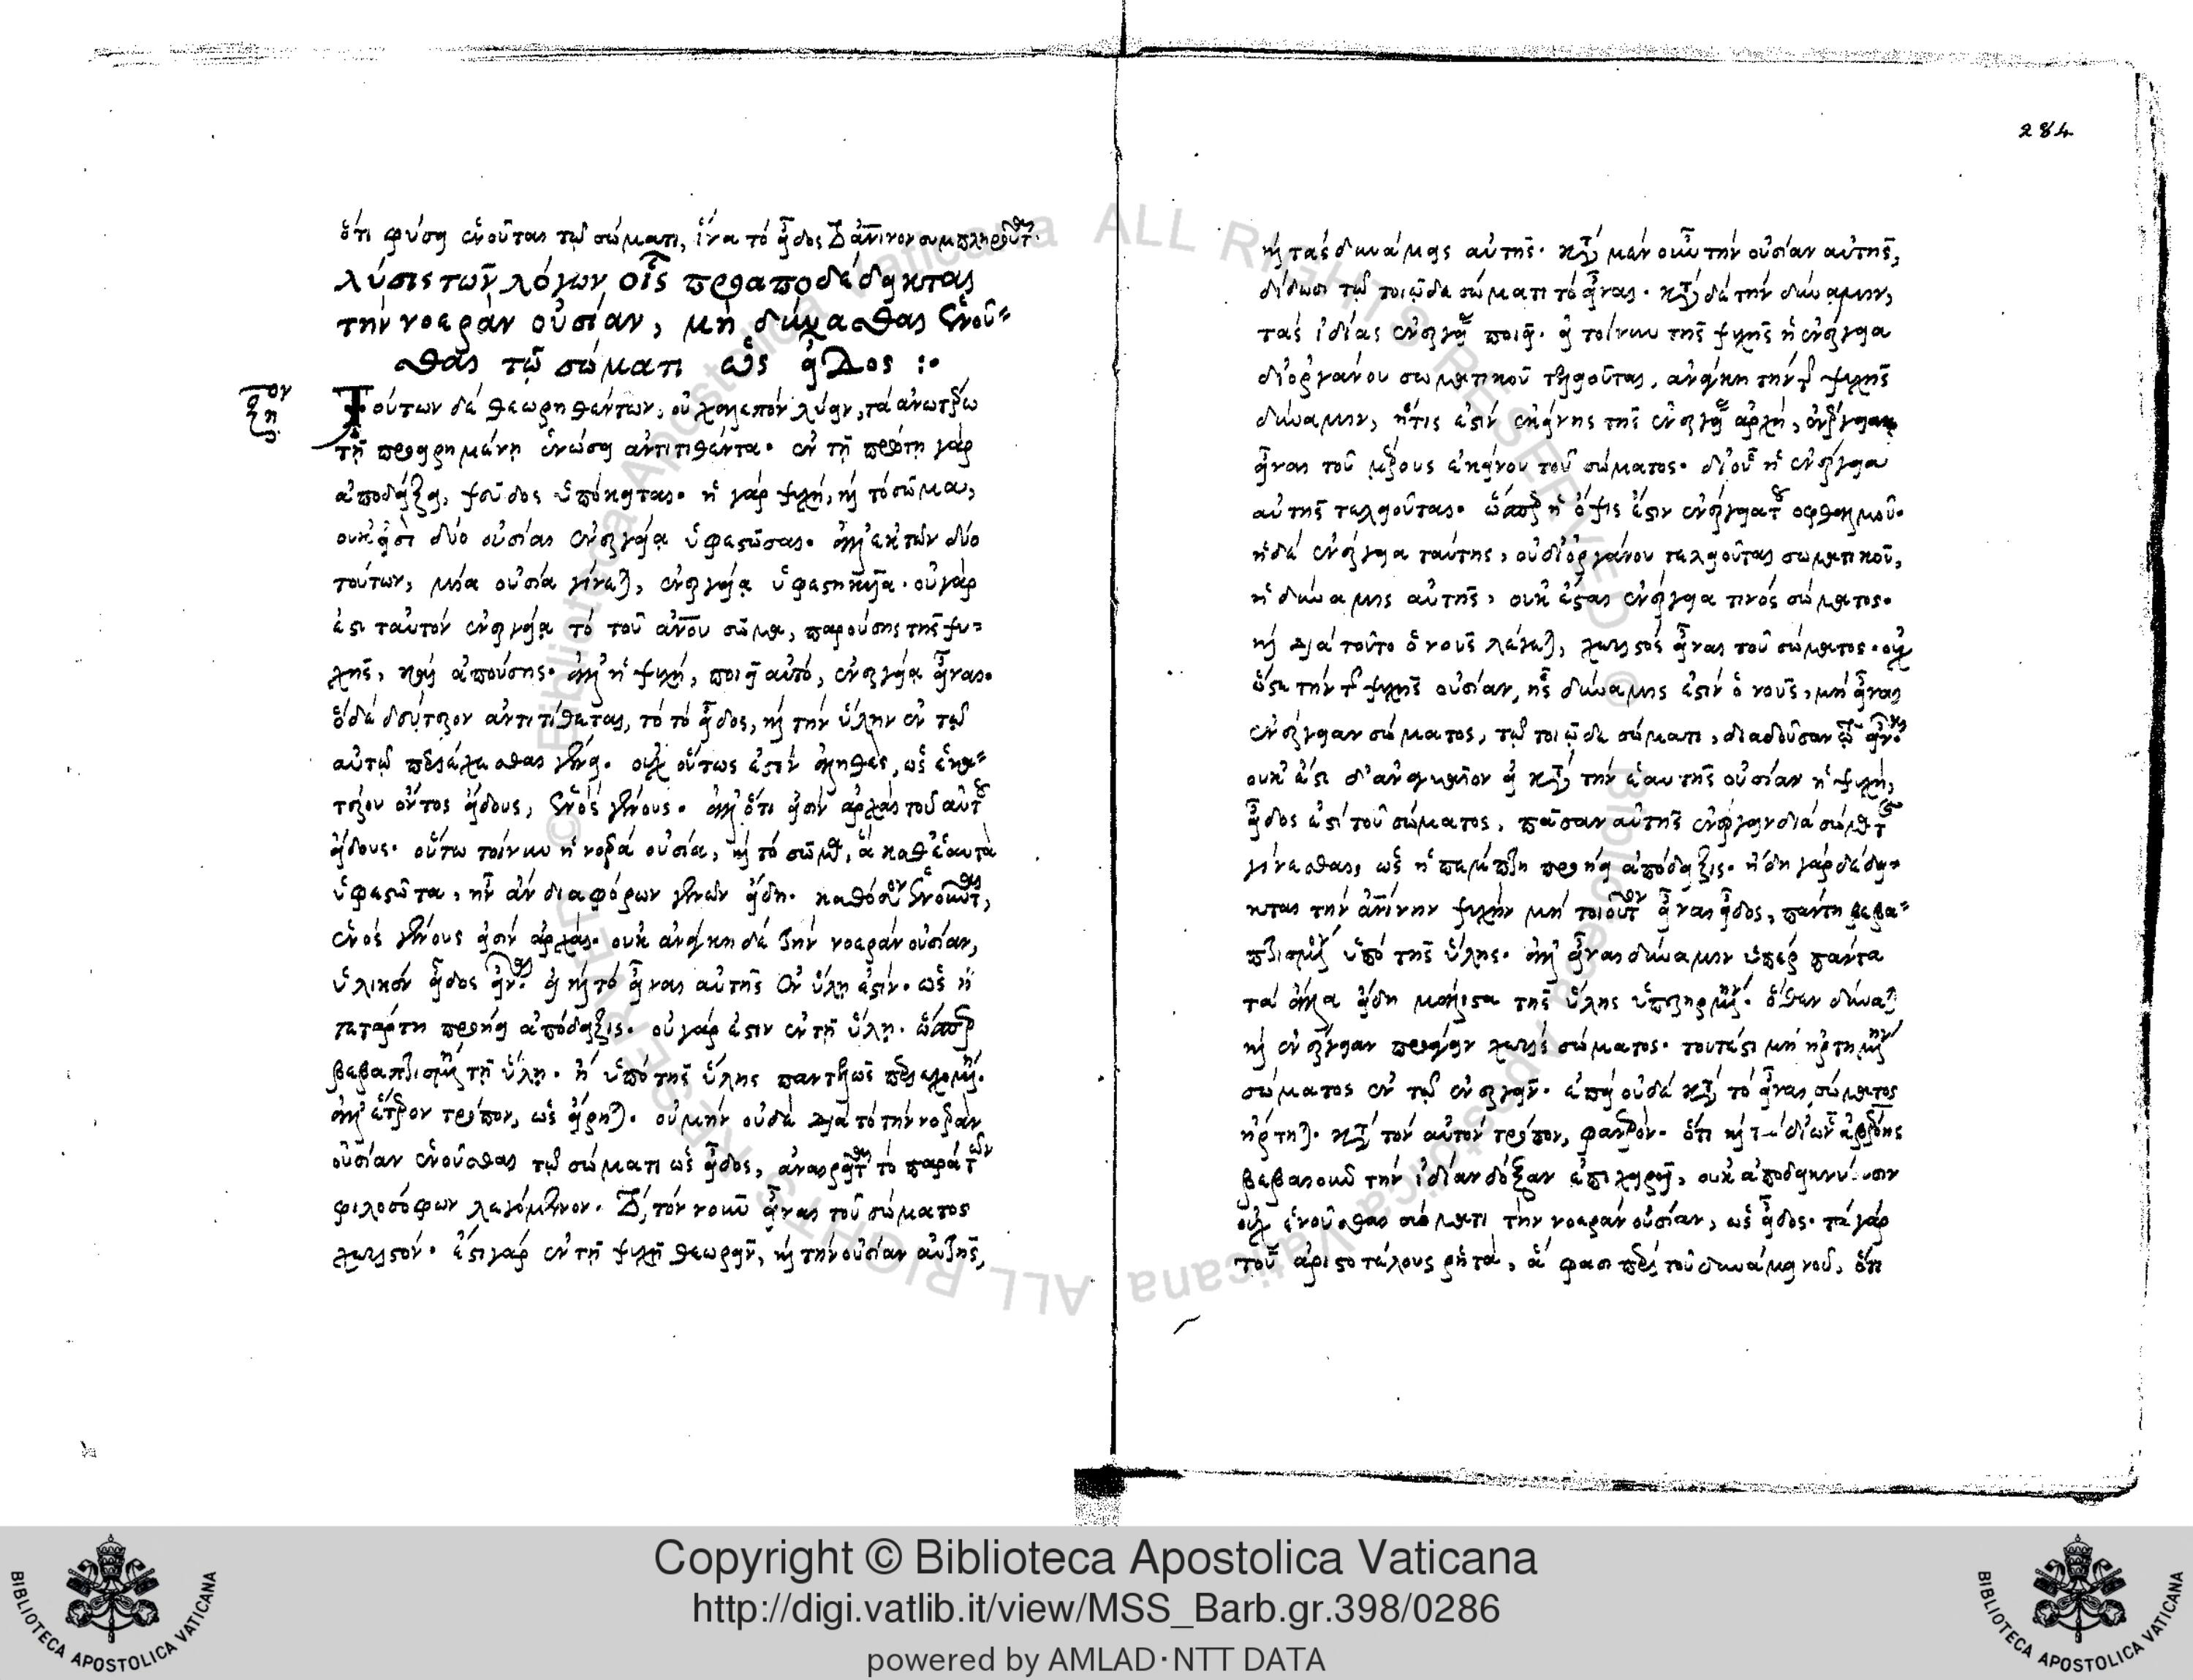 ὅτι φύσει ἑνοῦται τῷ σώματι, ἵνα τὸ εἶδος τὸ ἀνινον συμπληροῦσθαι.
λύσις τῶν λόγων οἷς προαποδέδεικται
τὴν νοερὰν οὐσίαν, μὴ δύνασθαι ἑνοῦ-
σθαι τῷ σώματι ὡς εἶδος :·
Τούτων δὲ θεωρηθέντων, οὐ χαλεπὸν λύειν, τὰ ἀνωτέρω
τῇ προειρημένῃ ἑνώσει ἀντιτιθέντα. ἐν τῇ πρώτῃ γὰρ
ἀποδείξει, ψεῦδος ὑπόκειται. ἡ γὰρ ψυχὴ, καὶ τὸ σῶμα,
οὐκ εἰσὶ δύο οὐσίαι ἐνεργείᾳ ὑφεστῶσαι. ἀλλ' ἐκ τῶν δύο
τούτων, μία οὐσία γίνεται, ἐνεργείᾳ ὑφεστηκυῖα. οὐ γάρ
ἐστι ταὐτὸν ἐνεργείᾳ τὸ τοῦ ἀνου σῶμα, παρούσης τῆς ψυ-
χῆς, καὶ ἀπούσης. ἀλλ' ἡ ψυχὴ, ποιεῖ αὐτὸ, ἐνεργείᾳ εἶναι.
ὃ δὲ δεύτερον ἀντιτίθεται, τὸ τὸ εἶδος, καὶ τὴν ὕλην ἐν τῷ
αὐτῷ περιέχεσθαι γένει. οὐχ οὕτως ἐστὶν ἀληθὲς, ὡς ἑκα-
τέρου ὄντος εἴδους, ἑνὸς γένους. ἀλλ' ὅτι εἰσὶν ἀρχαὶ τοῦ αὐτοῦ
εἴδους. οὕτω τοίνυν ἡ νοερὰ οὐσία, καὶ τὸ σῶμα, ἃ καθ' ἑαυτὰ
ὑφεστῶτα, ἦν ἂν διαφόρων γενῶν εἴδη. καθόσον ἑνοῦνται,
ἑνὸς γένους εἰσὶν ἀρχαί. οὐκ ἀνάγκη δὲ τὴν νοερὰν οὐσίαν,
ὑλικὸν εἶδος εἶναι. εἰ καὶ τὸ εἶναι αὐτῆς ἐν ὕλῃ ἐστίν. ὡς ἡ
τετάρτη προῄει ἀπόδειξις. οὐ γάρ ἐστιν ἐν τῇ ὕλῃ. ὥσπερ
βεβαπτισμένη τῇ ὕλῃ. ἢ ὑπὸ τῆς ὕλης παντελῶς περιεχομένη.
ἀλλ' ἕτερον τρόπον, ὡς εἴρηται. οὐ μὴν οὐδὲ διὰ τὸ τὴν νοερὰν
οὐσίαν ἑνοῦσθαι τῷ σώματι ὡς εἶδος, ἀναιρεῖται τὸ παρὰ τῶν
φιλοσόφων λεγόμενον. τὸ, τὸν νοῦν εἶναι τοῦ σώματος
χωριστόν. ἔστι γὰρ ἐν τῇ ψυχῇ θεωρεῖν, καὶ τὴν οὐσίαν αὐτῆς,
284
καὶ τὰς δυνάμεις αὐτῆς. κατὰ μὲν οὖν τὴν οὐσίαν αὐτῆς,
δίδωσι τῷ τοιῷδε σώματι τὸ εἶναι. κατὰ δὲ τὴν δύναμιν,
τὰς ἰδίας ἐνεργείας ποιεῖ. εἰ τοίνυν τῆς ψυχῆς ἡ ἐνέργεια
δι' ὀργάνου σωματικοῦ τελειοῦται, ἀνάγκη τὴν τῆς ψυχῆς
δύναμιν, ἥτις ἐστὶν ἐκείνης τῆς ἐνεργείας ἀρχὴ, ἐνέργειαν
εἶναι τοῦ μέρους ἐκείνου τοῦ σώματος. δι' οὗ ἡ ἐνέργεια
αὐτῆς τελειοῦται. ὥσπερ ἡ ὄψις ἐστὶν ἐνέργεια τοῦ ὀφθαλμοῦ.
ἡ δὲ ἐνέργεια ταύτης, οὐ δι' ὀργάνου τελειοῦται σωματικοῦ,
ἡ δύναμις αὐτῆς, οὐκ ἔσται ἐνέργεια τινὸς σώματος.
καὶ διὰ τοῦτο ὁ νοῦς λέγεται, χωριστὸς εἶναι τοῦ σώματος. οὐχ
ὥστε τὴν τῆς ψυχῆς οὐσίαν, ἧς δύναμις ἐστὶν ὁ νοῦς, μὴ εἶναι
ἐνέργειαν σώματος, τῷ τοιῷδε σώματι, διαδοῦσαν τὸ εἶναι.
οὐκ ἔστι δ' ἀναγκαῖον εἰ κατὰ τὴν ἑαυτῆς οὐσίαν ἡ ψυχὴ,
εἶδος ἐστὶ τοῦ σώματος, πᾶσαν αὐτῆς ἐνέργειαν διὰ σώματος
γίνεσθαι, ὡς ἡ πέμπτη προῄει ἀπόδειξις. ἤδη γὰρ δέδει-
κται τὴν ἀνίνην ψυχὴν μὴ τοιοῦτον εἶναι εἶδος, πάντη βεβα-
πτισμένον ὑπὸ τῆς ὕλης. ἀλλ' εἶναι δύναμιν ὑπὲρ πάντα
τὰ ἄλλα εἴδη μάλιστα τῆς ὕλης ὑπερῃρμένην. ὅθεν δύναται
καὶ ἐνέργειαν προάγειν χωρὶς σώματος. τουτέστι μὴ ἠρτημένην
σώματος ἐν τῷ ἐνεργεῖν. ἐπεὶ οὐδὲ κατὰ τὸ εἶναι σώματος
ἤρτηται. κατὰ τὸν αὐτὸν τρόπον, φανερὸν. ὅτι καὶ τὰ δι' ὧν ἀβερόης
βεβαιοῦν τὴν ἰδίαν δόξαν ἐπιχειρεῖ, οὐκ ἀποδεικνύουσιν
οὐχ ἑνοῦσθαι σώματι τὴν νοερὰν οὐσίαν, ὡς εἶδος. τὰ γὰρ
τοῦ ἀριστοτέλους ῥητὰ, ἅ φασι περὶ τοῦ δυνάμει νοῦ, ὅτι
Copyright © Biblioteca Apostolica Vaticana
http://digi.vatlib.it/view/MSS_Barb.gr.398/0286
powered by AMLAD·NTT DATA
BIBLIOTECA APOSTOLICA VATICANA
BIBLIOTECA APOSTOLICA VATICANA